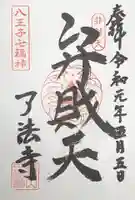 奉拝 令和元年五月五日
弁財天
八王子七福神
了法寺